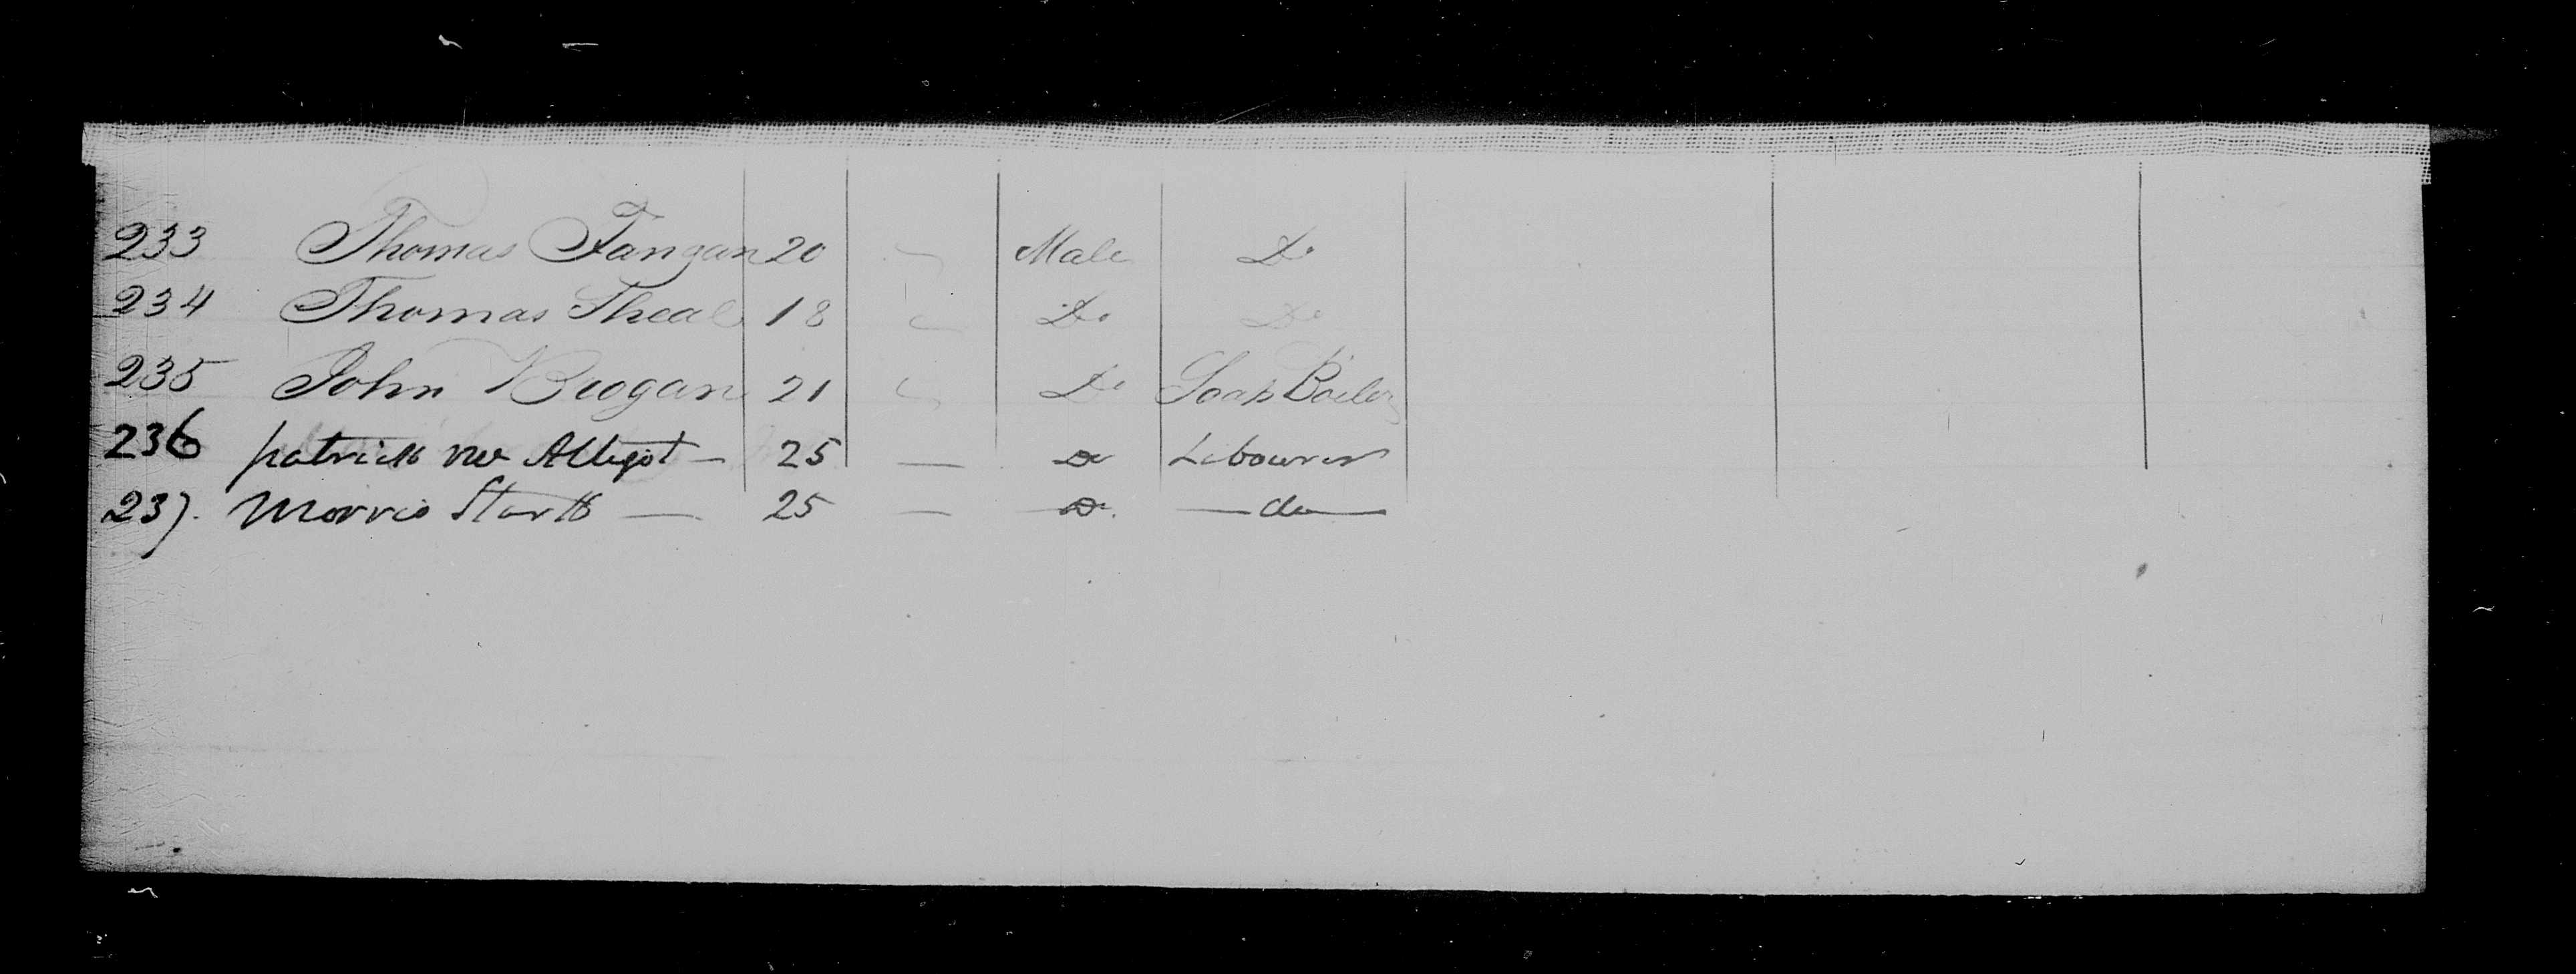 233 Thomas Fangan 20 Male Do
234 Thomas Theal 18 Do Do
235 John Brogan 21 Do Soap Boiler
236 patrick Mc — 25 — Do Labourer
237. Morris Stark — 25 — Do. — do —